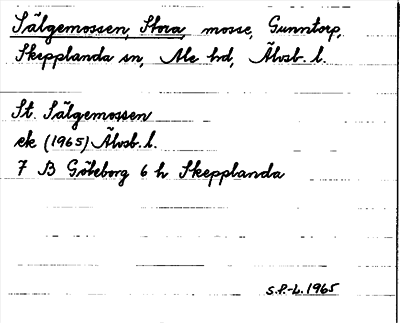 Sälgemossen, Stora, mosse, Gunntorp,
Skepplanda sn, Ale hd, Älvsb. l.
St. Sälgemossen
ek (1965) Älvsb. l.
7 B Göteborg 6 h Skepplanda
S.P.-L. 1965